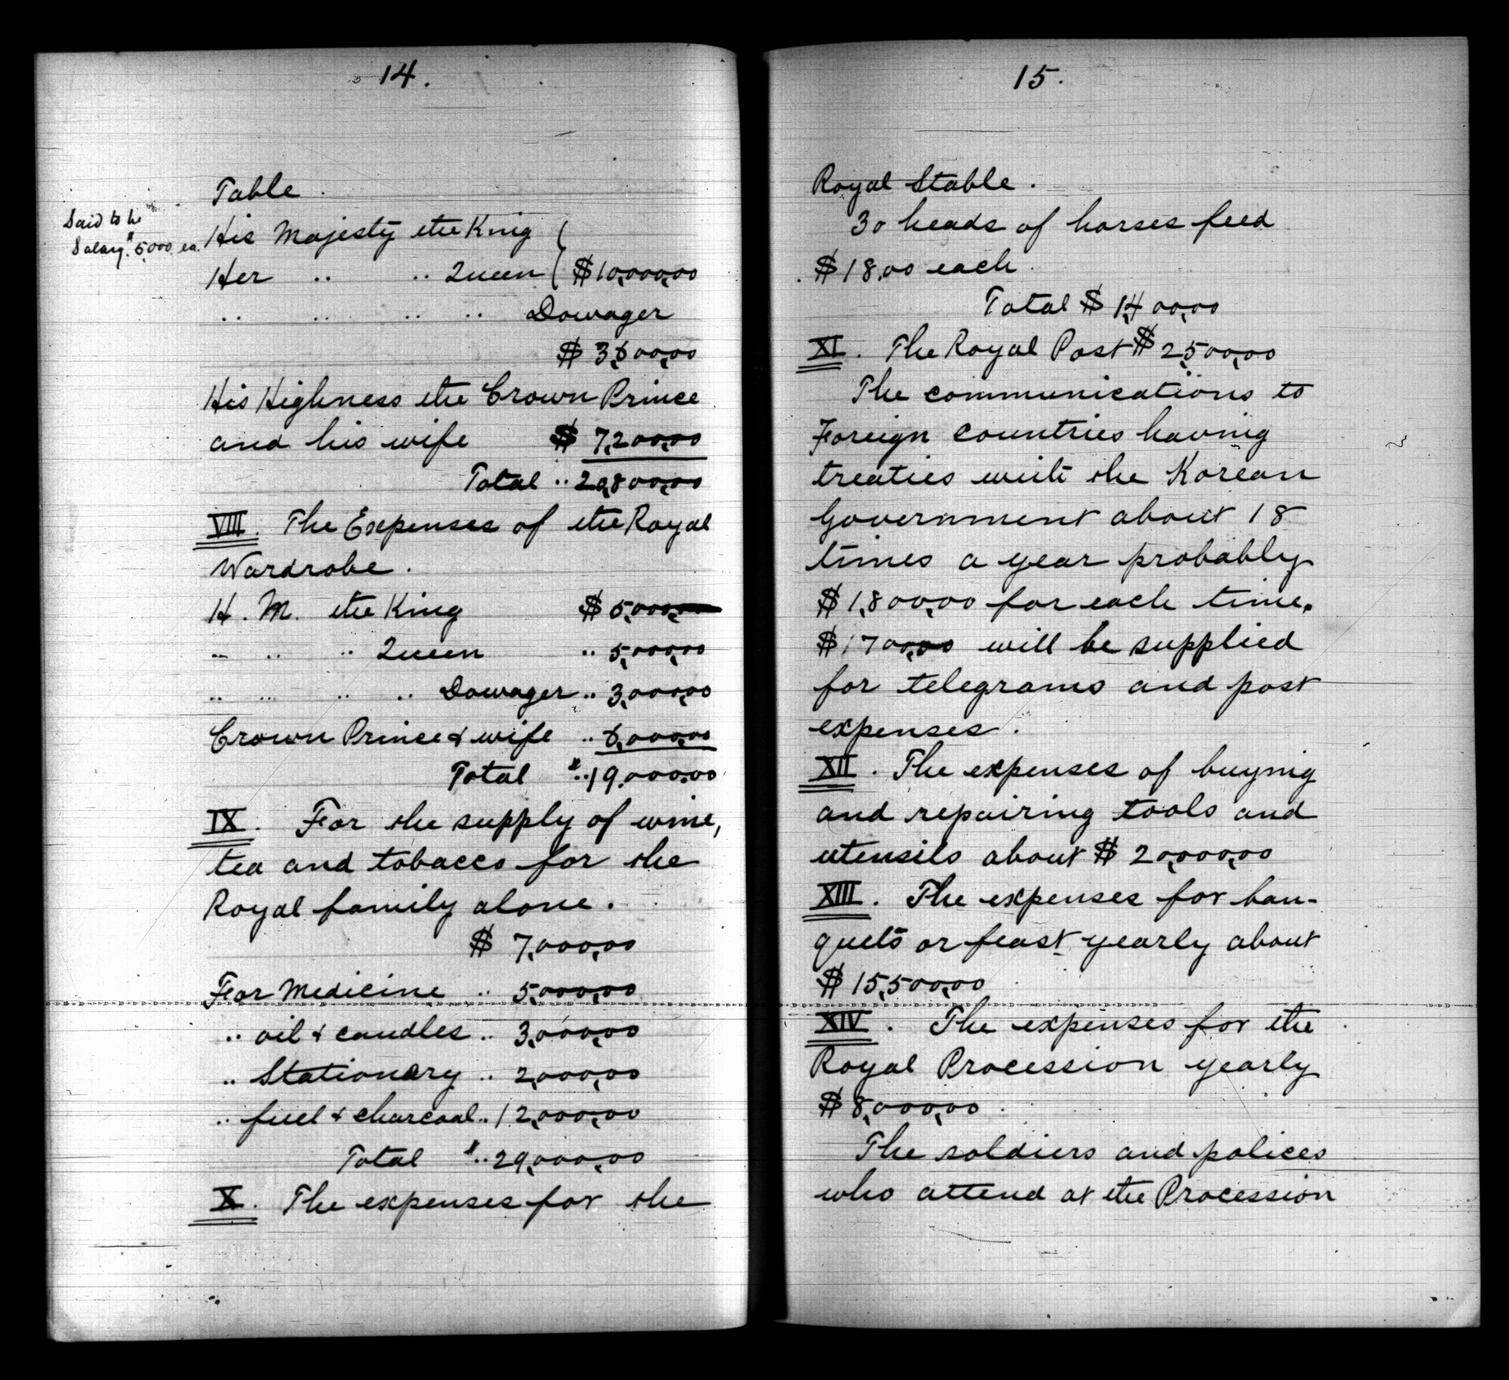 14.
Table.
Said to be
Salary $5000 ea.
His Majesty the King
Her " " Queen $10,000,00
" " " " Dowager
$3,600,00
His Highness the Crown Prince
and his wife $7,200,00
Total " 20,800,00
VIII. The Expenses of the Royal
Wardrobe.
H. M. the King $5,000,00
" " " Queen " 5,000,00
" " " " Dowager " 3,000,00
Crown Prince & wife " 6,000,00
Total $ " 19,000,00
IX. For the supply of wine,
tea and tobacco for the
Royal family alone.
$ 7,000,00
For Medicine " 5,000,00
" oil & candles " 3,000,00
" Stationary " 2,000,00
" fuel & charcoal " 12,000,00
Total $ " 29,000,00
X. The expenses for the
15.
Royal Stable.
30 heads of horses feed
$18,00 each
Total $1,400,00
XI. The Royal Post $2,500,00
The communications to
Foreign countries having
treaties with the Korean
Government about 18
times a year probably
$1,800,00 for each time.
$1700,00 will be supplied
for telegrams and post
expenses.
XII. The expenses of buying
and repairing tools and
utensils about $20,000,00
XIII. The expenses for ban-
quets or feast yearly about
$15,500,00
XIV. The expenses for the
Royal Procession yearly
$8,000,00
The soldiers and polices
who attend at the Procession